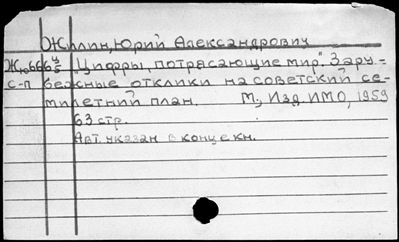 Жилин, Юрий Александрович
Ж 66 64/5 "Цифры, потрясающие мир". Зару-
с-п бежные отклики на советский се-
милетний план. М., Изд. ИМО, 1959
63 стр.
Авт. указан в конце кн.